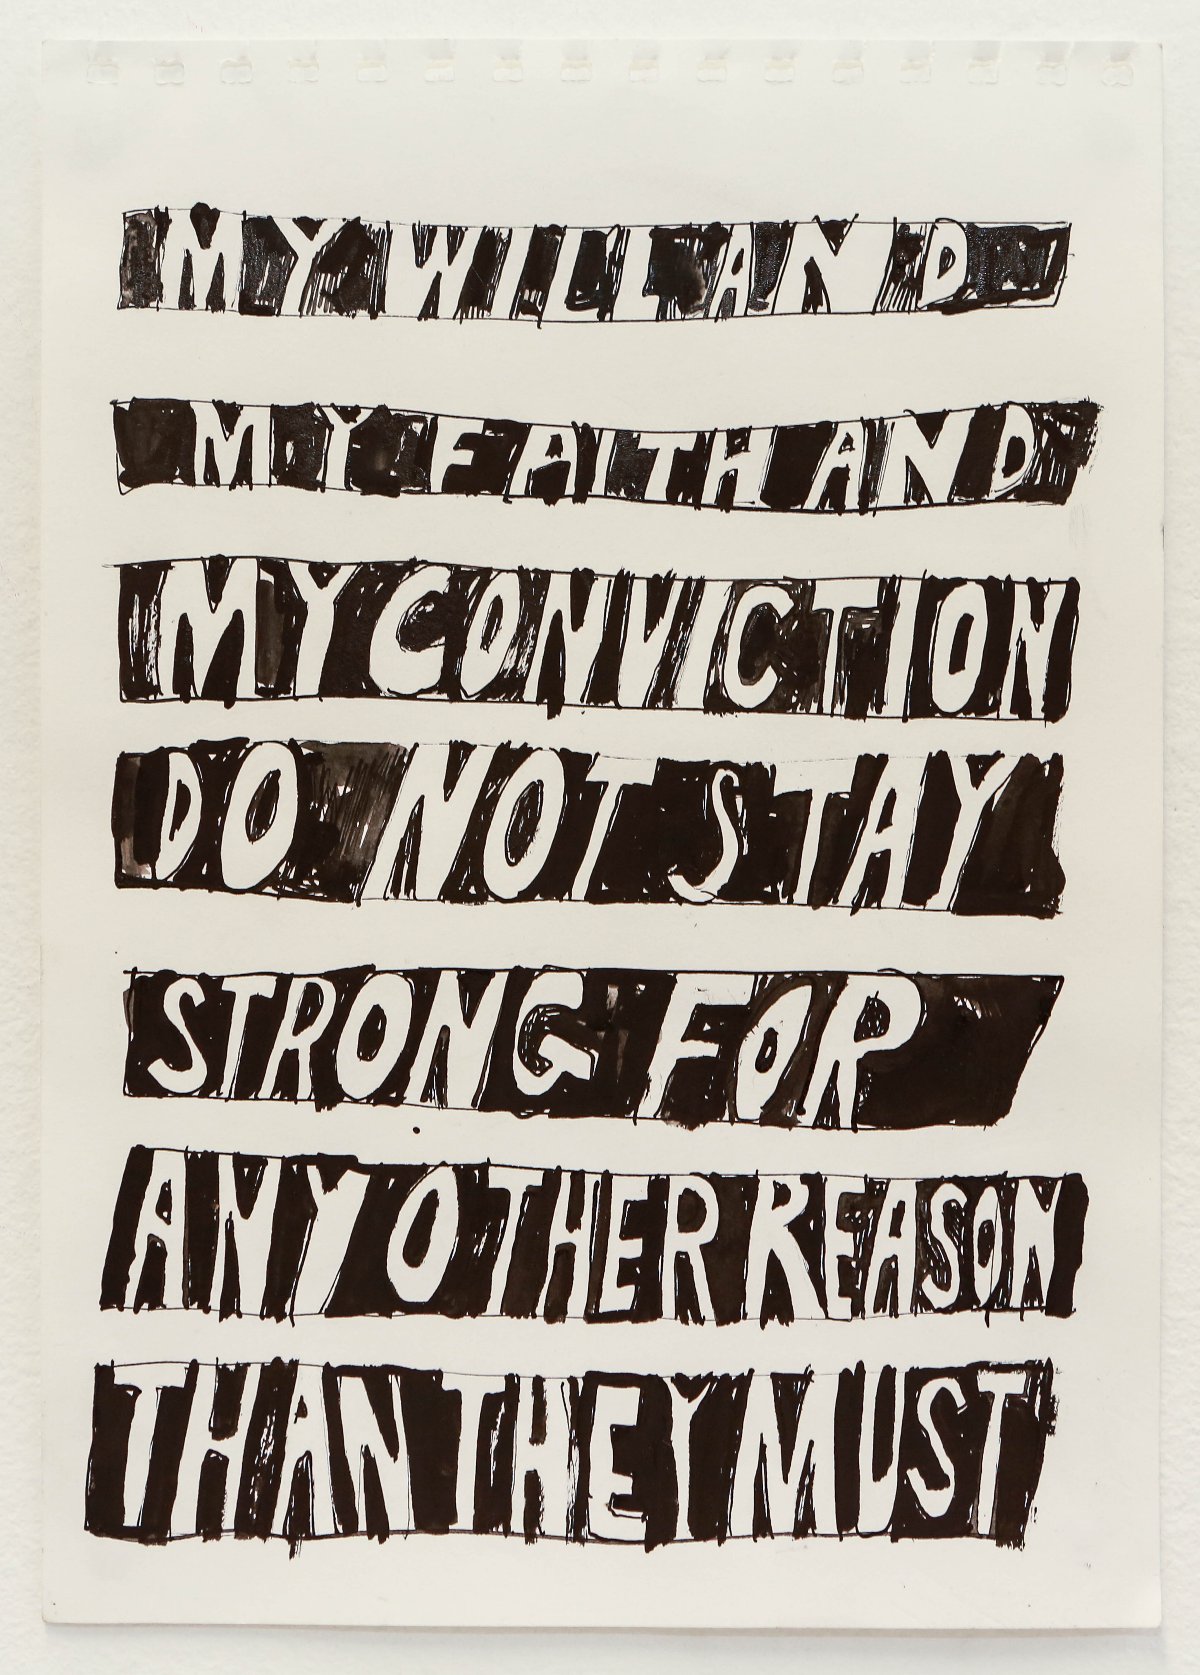 MY WILL AND
MY FAITH AND
MY CONVICTION
DO NOT STAY
STRONG FOR
ANY OTHER REASON
THAN THEY MUST